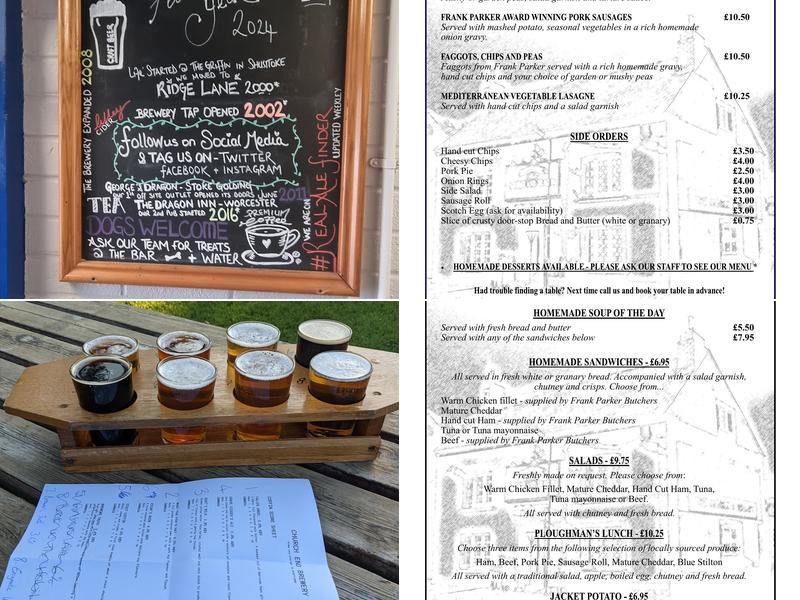 2024
CRAFT BEER
THE BREWERY EXPANDED 2008
LIFE STARTED @ THE GRIFFIN IN SHUSTOKE
WE MOVED TO
RIDGE LANE 2000*
BREWERY TAP OPENED 2002*
CIDER
follow us on Social Media
& TAG US ON - TWITTER
FACEBOOK + INSTAGRAM
GEORGE & DRAGON - STOKE GOLDING
OUR 1ST OFF SITE OUTLET OPENED ITS DOORS JUNE 2011
TEA THE DRAGON INN - WORCESTER
OUR 2ND PUB STARTED 2016*
PREMIUM COFFEE
DOGS WELCOME
ASK OUR TEAM FOR TREATS
@ THE BAR + WATER
WE ARE ON
#REALALEFINDER
UPDATED WEEKLY
FRANK PARKER AWARD WINNING PORK SAUSAGES £10.50
Served with mashed potato, seasonal vegetables in a rich homemade
onion gravy.
FAGGOTS, CHIPS AND PEAS £10.50
Faggots from Frank Parker served with a rich homemade gravy,
hand cut chips and your choice of garden or mushy peas
MEDITERRANEAN VEGETABLE LASAGNE £10.25
Served with hand cut chips and a salad garnish
SIDE ORDERS
Hand cut Chips £3.50
Cheesy Chips £4.00
Pork Pie £2.50
Onion Rings £4.00
Side Salad £3.00
Sausage Roll £3.00
Scotch Egg (ask for availability) £3.00
Slice of crusty door-stop Bread and Butter (white or granary) £0.75
* HOMEMADE DESSERTS AVAILABLE - PLEASE ASK OUR STAFF TO SEE OUR MENU *
Had trouble finding a table? Next time call us and book your table in advance!
CHURCH END BREWERY
COFFIN SCORE SHEET
1
2
3
4
HOMEMADE SOUP OF THE DAY
Served with fresh bread and butter £5.50
Served with any of the sandwiches below £7.95
HOMEMADE SANDWICHES - £6.95
All served in fresh white or granary bread. Accompanied with a salad garnish,
chutney and crisps. Choose from...
Warm Chicken fillet - supplied by Frank Parker Butchers
Mature Cheddar
Hand cut Ham - supplied by Frank Parker Butchers
Tuna or Tuna mayonnaise
Beef - supplied by Frank Parker Butchers
SALADS - £9.75
Freshly made on request. Please choose from:
Warm Chicken Fillet, Mature Cheddar, Hand Cut Ham, Tuna,
Tuna mayonnaise or Beef.
All served with chutney and fresh bread.
PLOUGHMAN'S LUNCH - £10.25
Choose three items from the following selection of locally sourced produce:
Ham, Beef, Pork Pie, Sausage Roll, Mature Cheddar, Blue Stilton
All served with a traditional salad, apple, boiled egg, chutney and fresh bread.
JACKET POTATO - £6.95